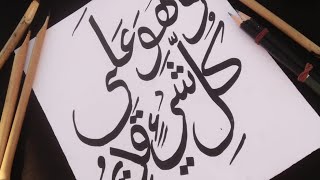 وَهُوَ عَلَى
كُلِّ شَيْءٍ قدير